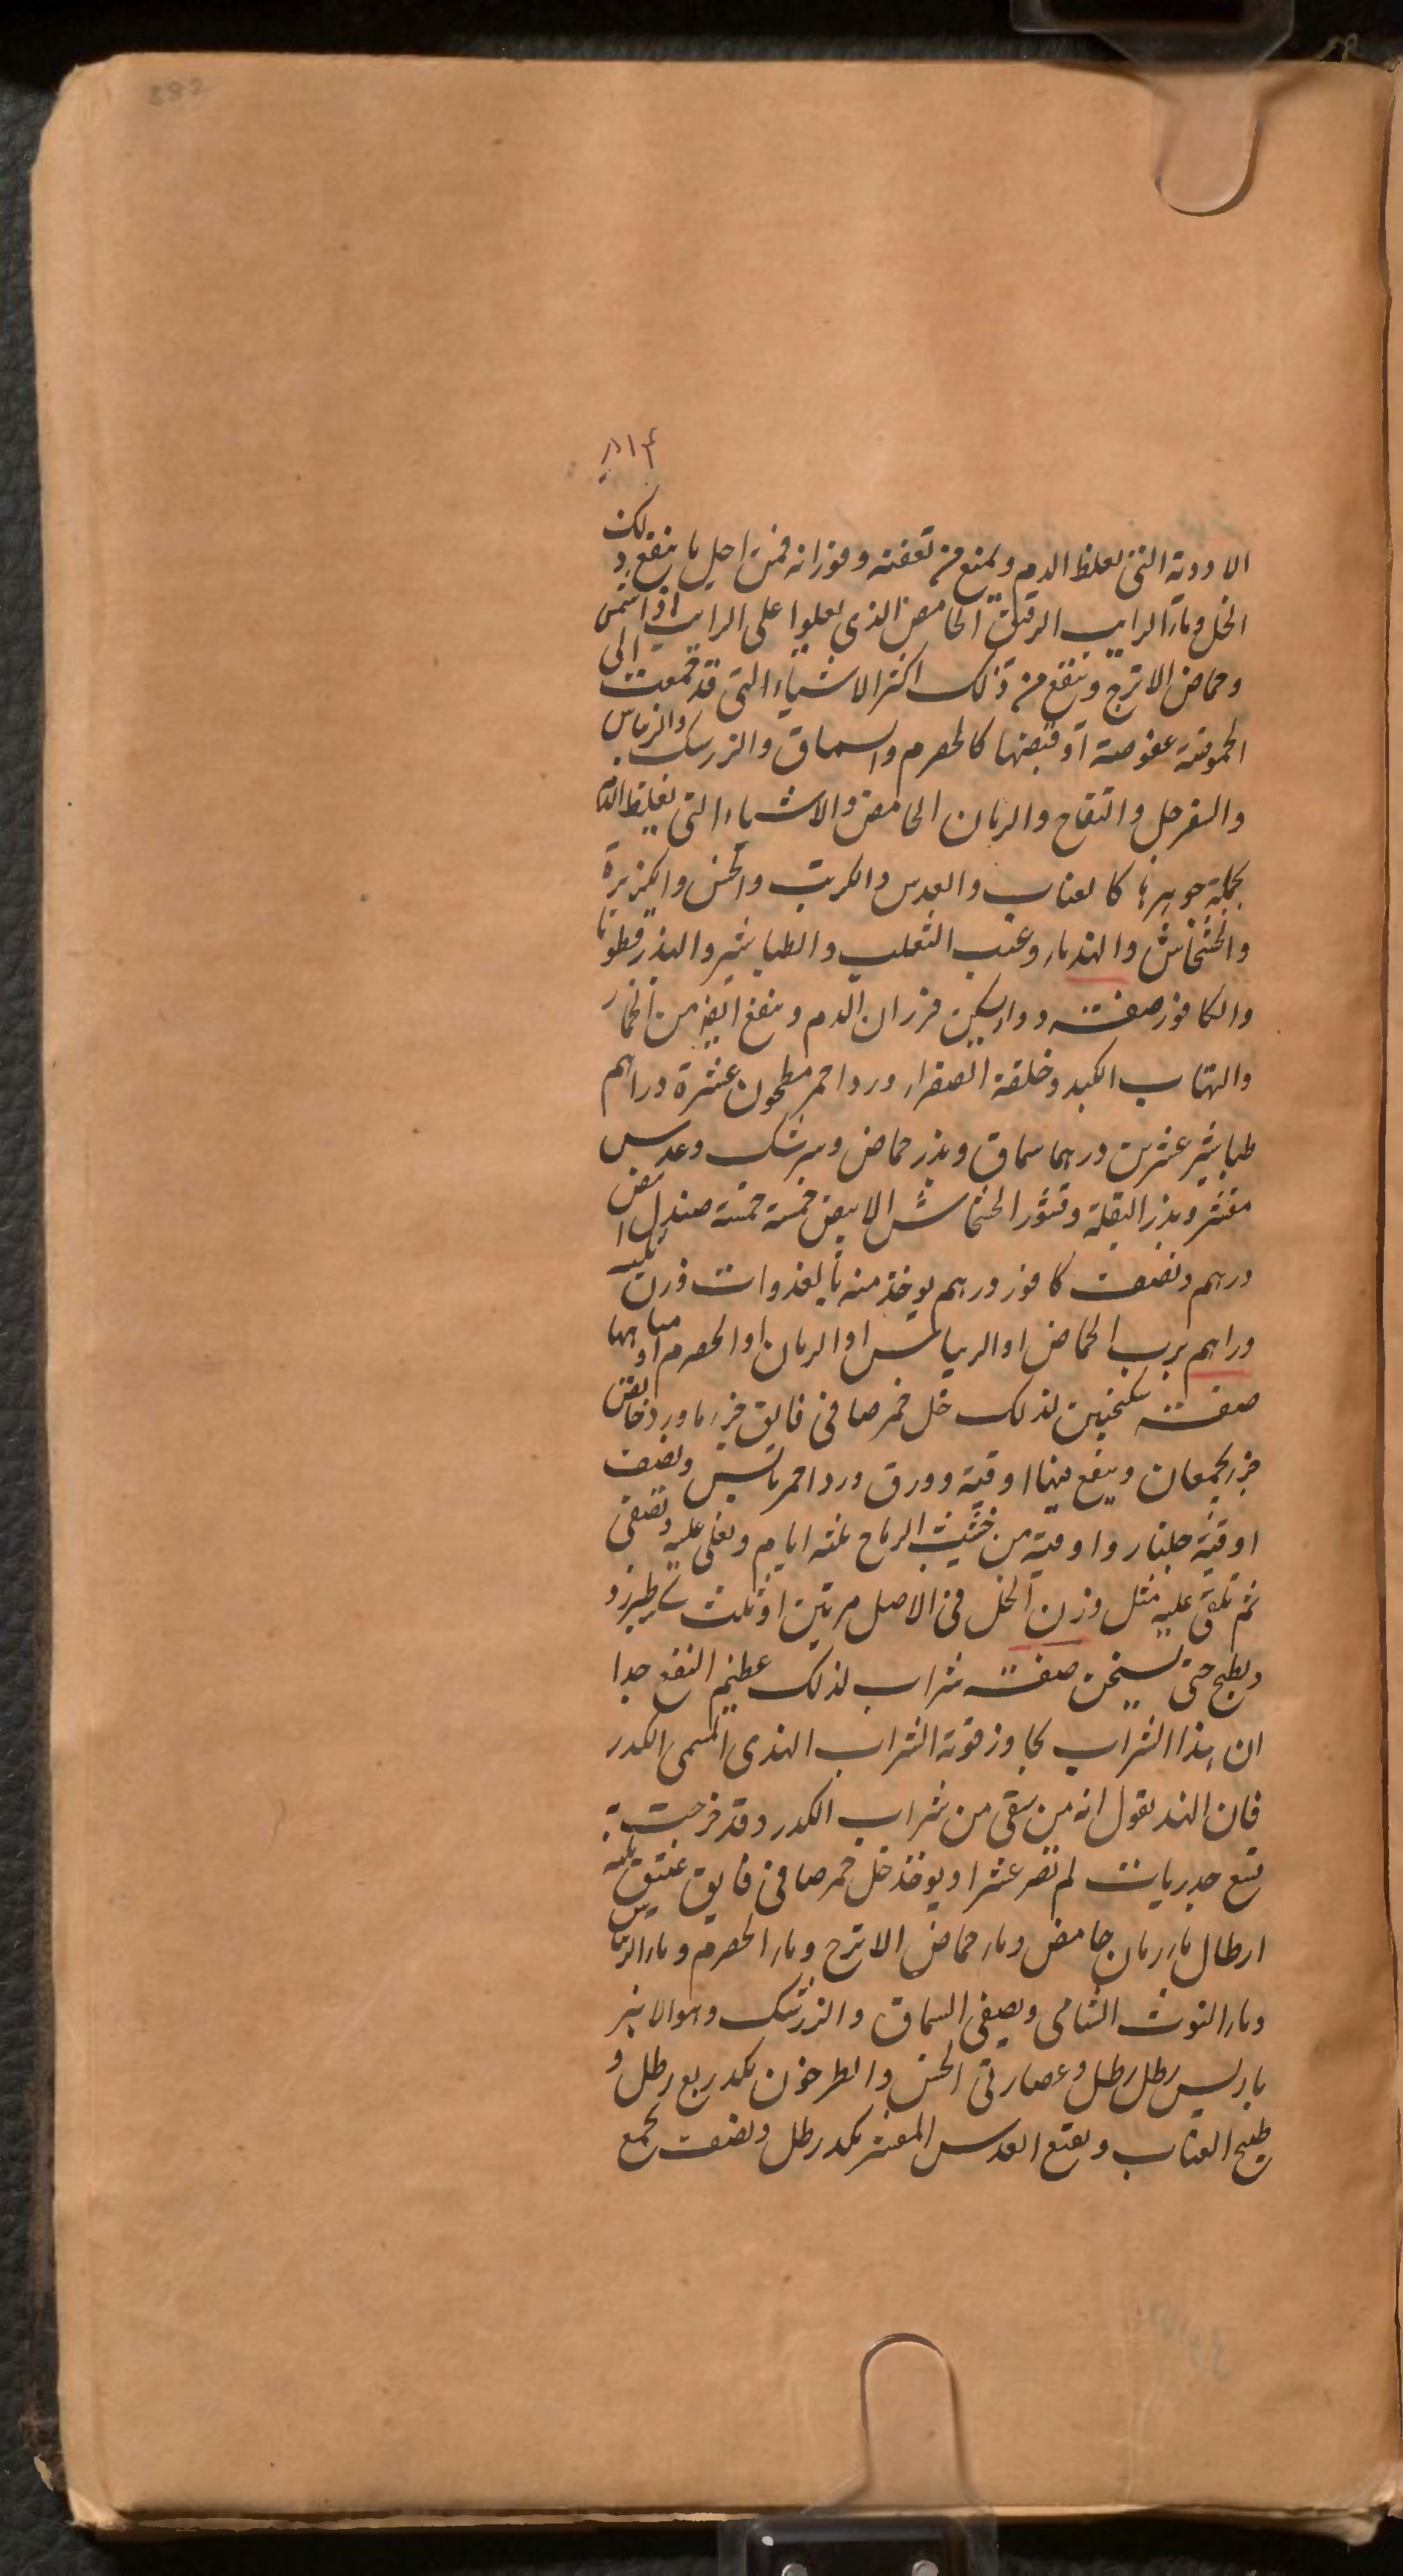 382
٨١٣
الادوية التى تغلظ الدم ويمنع من تعفنه وفورانه فمن اجل ما ينفع ذلك
الخل وماء الرايب الرقيق الحامض الذى يعلوا على الرايب اذا شمس
وحماض الاترج وينفع من ذلك اكثر الاشياء التى قد جمعت الى
الحموضة عفوصة او قبضها كالحصرم والسماق والزرسك والريباس
والسفرجل والتفاح والرمان الحامض والاشياء التى تغلظ الدم
بجملة جوهرها كالعناب والعدس والكرنب والخس والكزبرة
والخشخاش والهندباء وعنب الثعلب والطباشير والبذر قطونا
والكافور صفة دواء يسكن فوران الدم وينفع ايضا من الخمار
والتهاب الكبد وخلقة الصفراء ورد احمر مطحون عشرة دراهم
طباشير عشرين درهما سماق وبذر حماض وبرشك وعدس
مقشر وبذر البقلة وقشور الخشخاش الابيض خمسة خمسة صندل ابيض
درهم ونصف كافور درهم يوخذ منه بالغدوات وزن ثلثة
دراهم برب الحماض او الريباس او الرمان او الحصرم او مياهها
صفة سكنجبين لذلك خل خمر صافى فايق جزء ماورد خالص
جزء يجمعان وينقع فيها اوقية وورق ورد احمر يابس ونصف
اوقية جلنار واوقية من الرمان ثلثة ايام ويغلى عليه وتصفى
ثم تلقى عليه مثل وزن الخل فى الاصل مرتين او ثلث سكر طبرزد
ويطبخ حتى يسخن صفة شراب لذلك عظيم النفع جدا
ان هذا الشراب يجاوز قوته الشراب الهندى المسمى الكدر
فان الهند يقول انه من يسقى من شراب الكدر وقد خرجت به
تسع جدريات لم تصر عشرا ويوخذ خل خمر صافى فايق عتيق ثلثة
ارطال ماء رمان حامض وماء حماض الاترج وماء الحصرم وماء الريباس
وماء التوث الشامى ويصفى السماق والزرشك وهو الانبر
باريس رطل رطل وعصارتى الخس والطرخون بكد ربع رطل و
طبيخ العناب ونقيع العدس المقشر بكد رطل ونصف يجمع